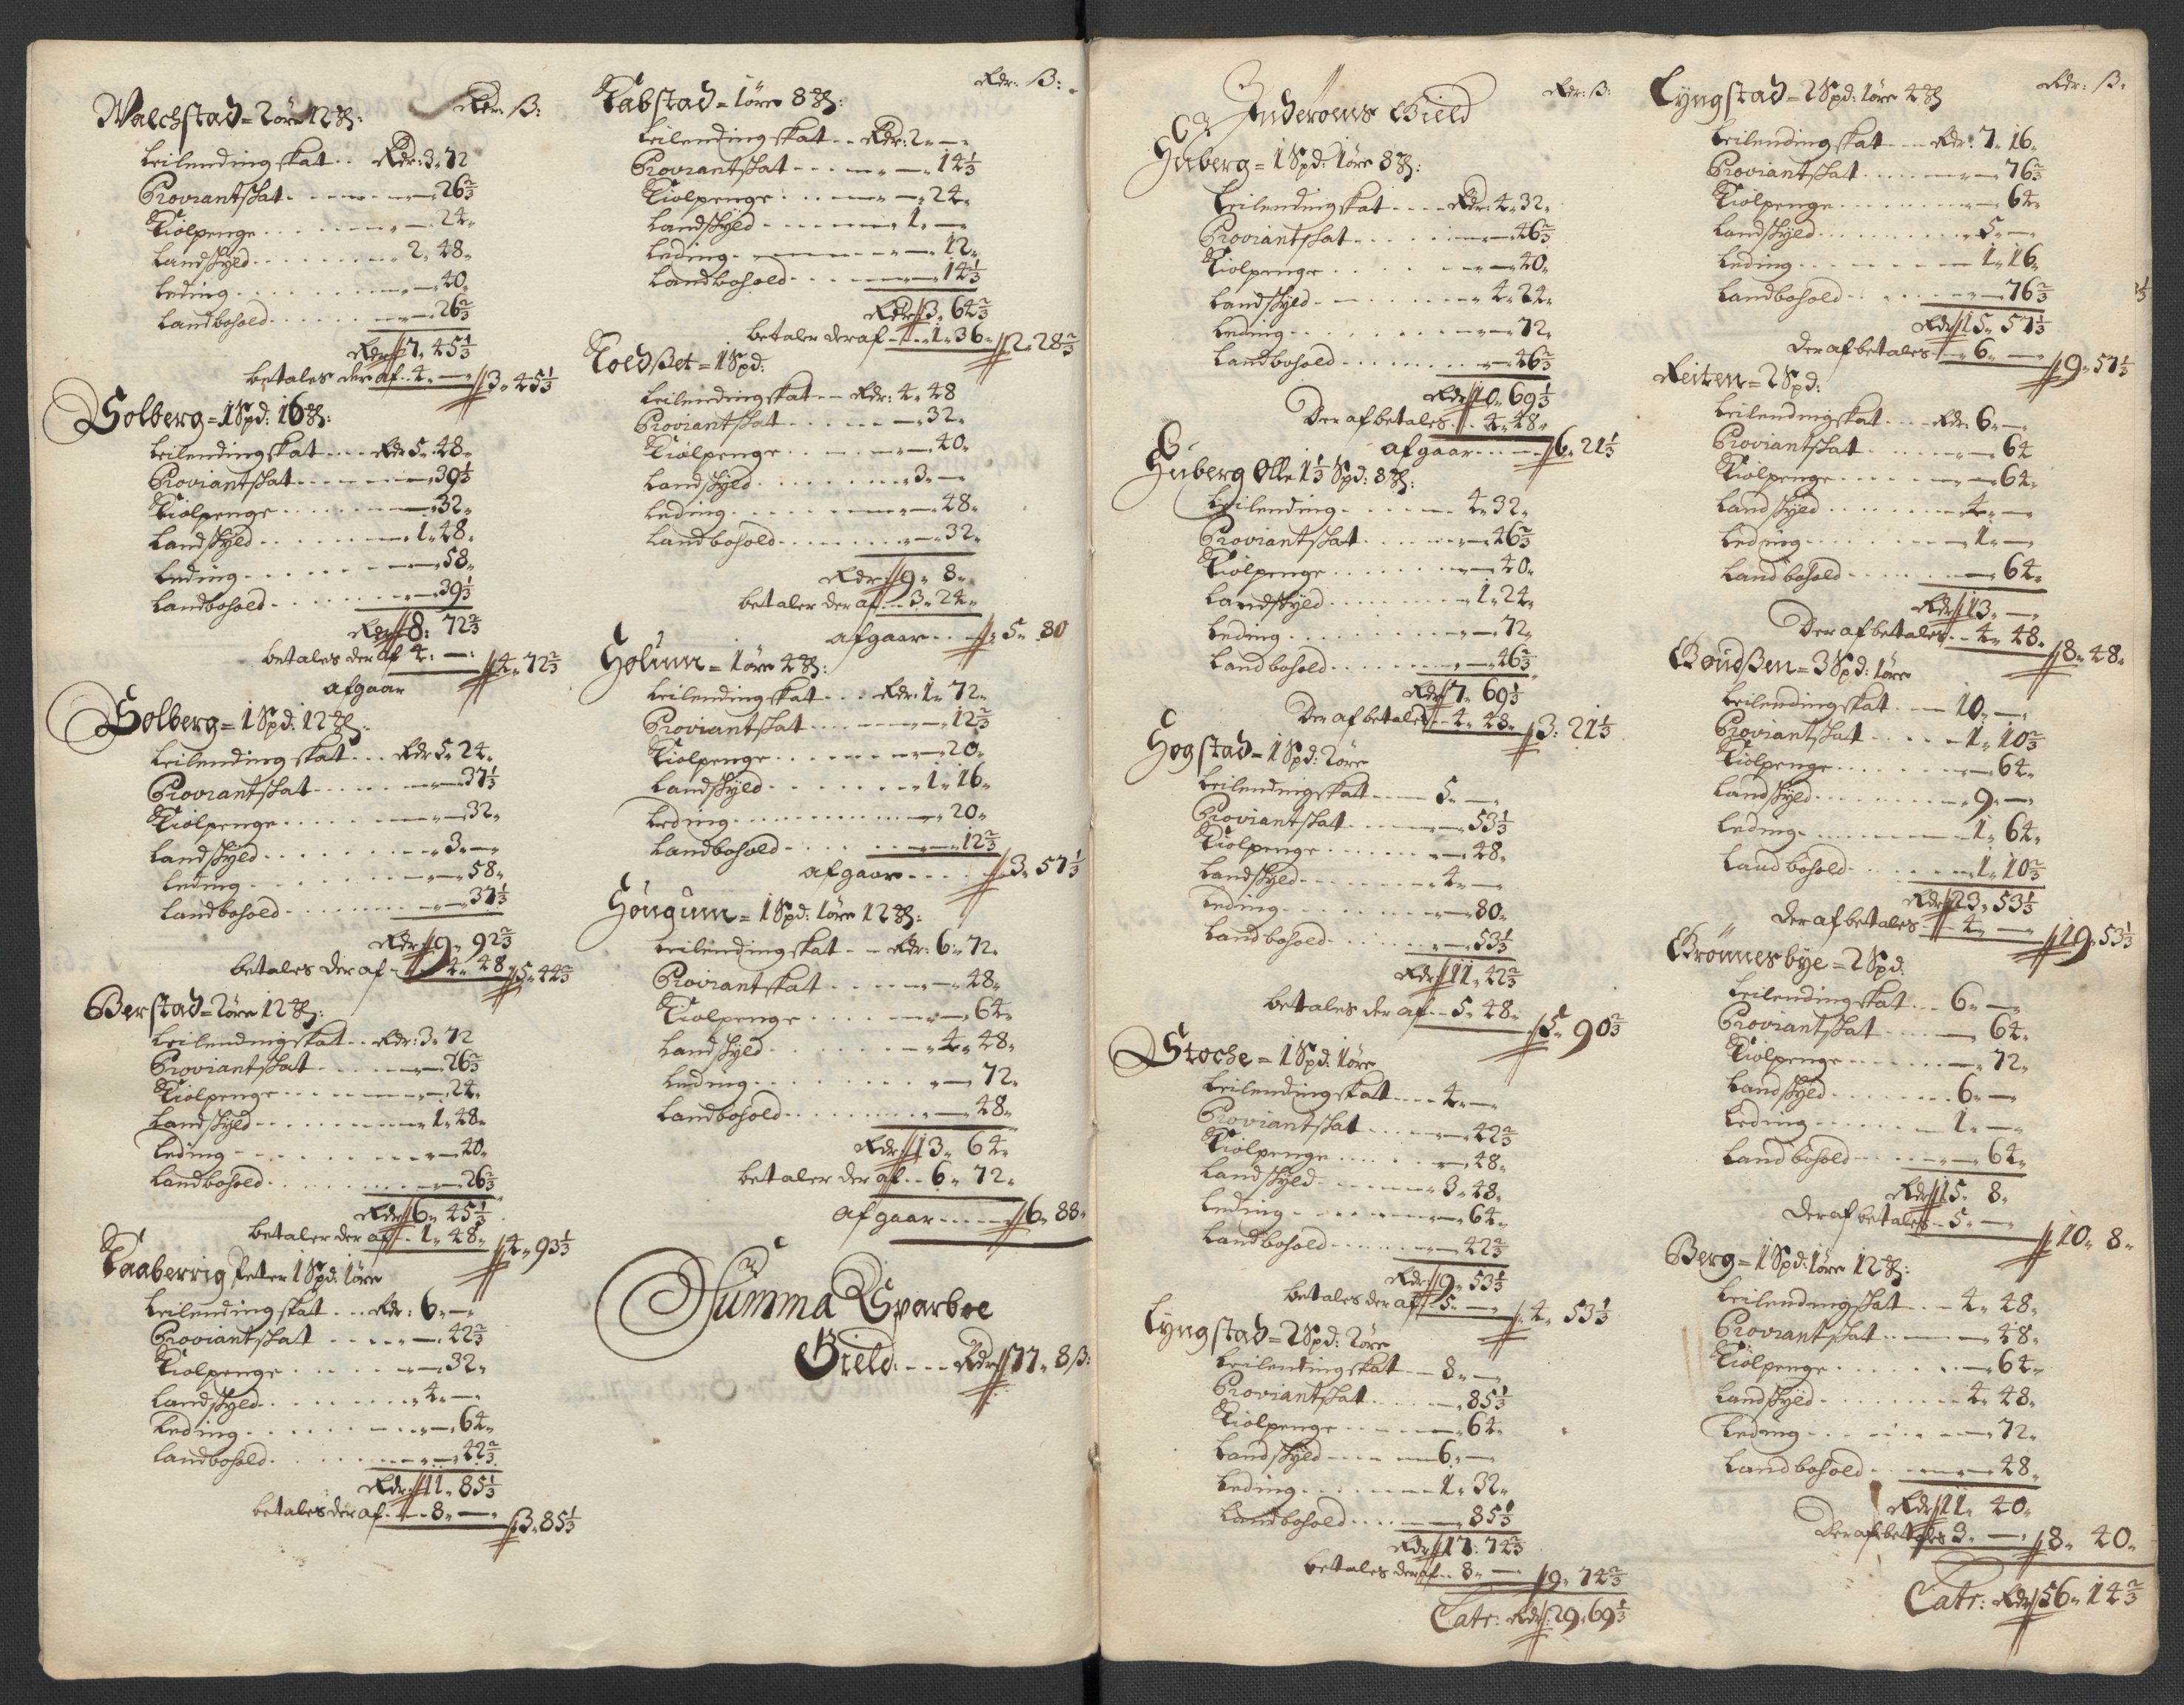 Rdr: ß:
Walchstad = 2 øre 12 ℔:
Leilendingskat .. Rdr: 3 " 72
Proviantskat - - - - " 26 2/3
Tiolpenge - - - - " 24 "
Landskÿld - - - - 2 " 48 "
Leding - - - - " 40 "
Landbohold - - - - " 26 2/3
Rdr 7 " 45 1/3
betales der af .. 4 " — 3 " 45 1/3
Solberg = 1 Spd: 16 ℔:
Leilendingskat - - Rdr 5 " 48 "
Proviantskat - - - - " 39 1/3
Tiolpenge - - - - " 32 "
Landskÿld - - - - 1 " 48 "
Leding - - - - " 58 "
Landbohold - - - - " 39 1/3
Rdr 8 : 72 2/3
betales der af 4 : — : 4 " 72 2/3
afgaar
Solberg = 1 Spd: 12 ℔:
Leilendingskat .. Rdr 5 " 24 "
Proviantskat - - - - " 37 1/3
Tiolpenge - - - - " 32 "
Landskÿld - - - - " 3 " —
Leding - - - - " 58 "
Landbohold - - - - " 37 1/3
Rdr 9 " 92 2/3
betales der af - 4 " 48 5 " 44 2/3
Berstad = 2 øre 12 ℔:
Leilendingskat .. Rdr: 3 " 72
Proviantskat - - - - " 26 2/3
Tiolpenge - - - - " 24 "
Landskÿld - - - - 1 " 48 "
Leding - - - - " 40 "
Landbohold - - - - " 26 2/3
Rdr 6 " 45 1/3
betaler der af .. 1 " 48 " 4 " 93 1/3
Taaberrig Petter 1 Spd: 1 øre
Leilendingskat .. Rdr: 6 " —
Proviantskat - - - - " 42 2/3
Tiolpenge - - - - " 32 "
Landskÿld - - - - " 4 " —
Leding - - - - " 64 "
Landbohold - - - - " 42 2/3
Rdr 11 " 85 1/3
betales der af - - 8 " — 3 " 85 1/3
Rdr: ß:
Tabstad = 1 øre 8 ℔:
Leilendingskat .. Rdr: 2 " —
Proviantskat - - - - " 14 1/3
Tiolpenge - - - - " 24 "
Landskÿld - - - - 1 " —
Leding - - - - " 12 "
Landbohold - - - - " 14 1/3
Rdr 3 " 64 2/3
betaler deraf - - 1 " 36 " 2 " 28 2/3
Toldßet = 1 Spd:
Leilendingskat - - Rdr: 4 " 48
Proviantskat - - - - " 32 "
Tiolpenge - - - - " 40 "
Landskÿld - - - - " 3 " —
Leding - - - - " 48 "
Landbohold - - - - " 32 "
Rdr 9 " 8 "
betaler der af - - 3 " 24 "
afgaar - - 5 " 80
Holum = 1 øre 4 ℔:
Leilendingskat .. Rdr: 1 " 72 "
Proviantskat - - - - " 12 2/3
Tiolpenge - - - - " 20 "
Landskÿld - - - - 1 " 16 "
Leding - - - - " 20 "
Landbohold - - - - " 12 2/3
afgaar - - - - 3 " 57 1/3
Hougum = 1 Spd: 1 øre 12 ℔:
Leilendingskat - - Rdr: 6 " 72 "
Proviantskat - - - - " 48 "
Tiolpenge - - - - " 64 "
Landskÿld - - - - " 4 " 48 "
Leding - - - - " 72 "
Landbohold - - - - " 48 "
Rdr 13 " 64 "
betaler der af .. 6 " 72 "
afgaar - - - - 6 " 88 "
Summa Sparboe
Gield: - - - Rdr 77 " 8 ß:
Inderøens Gield
Rdr: ß:
Huberg = 1 Spd: 1 øre 8 ℔:
Leilendingskat - - - Rdr: 4 " 32 "
Proviantskat - - - - " 46 2/3
Tiolpenge - - - - " 40 "
Landskÿld - - - - " 4 " 24 "
Leding - - - - " 72 "
Landbohold - - - - " 46 2/3
Rdr 10 " 69 1/3
Der af betales .. 4 " 48 "
afgaar - - - - 6 " 21 1/3
Huberg Olle 1 1/3 Spd: 8 ℔:
Leilending - - - - 4 " 32 "
Proviantskat - - - - " 46 2/3
Tiolpenge - - - - " 40 "
Landskÿld - - - - 1 " 24 "
Leding - - - - " 72 "
Landbohold - - - - " 46 2/3
Rdr 7 " 69 1/3
Der af betales .. 4 " 48 " 3 : 21 1/3
Hogstad = 1 Spd: 2 øre
Leilendingskatt - - - 5 " —
Proviantskat - - - - " 53 1/3
Tiolpenge - - - - " 48 "
Landskÿld - - - - 4 " —
Leding - - - - " 80 "
Landbohold - - - - " 53 1/3
Rdr 11 " 42 2/3
betales der af - - 5 " 48 " 5 " 90 2/3
Stoche = 1 Spd: 1 øre
Leilendingskatt - - - 4 " —
Proviantskat - - - - " 42 2/3
Tiolpenge - - - - " 48 "
Landskÿld - - - - " 3 " 48 "
Leding - - - - " 64 "
Landbohold - - - - " 42 2/3
Rdr 9 " 53 1/3
betales der af - 5 " — 4 " 53 1/3
Lyngstad = 2 Spd: 2 øre
Leilendingskat - - 8 " —
Proviantskat - - - - " 85 1/3
Tiolpenge - - - - " 64 "
Landskÿld - - - - 6 " —
Leding - - - - 1 " 32 "
Landbohold - - - - " 85 1/3
Rdr 17 : 74 2/3
betales deraf .. 8 " — 9 " 74 2/3
Latr: Rdr: 29 " 69 1/3
Rdr: ß:
Lyngstad = 2 Spd: 1 øre 4 ℔
Leilendingskat - - - Rdr: 7 " 16 "
Proviantskat - - - - " 76 2/3
Tiolpenge - - - - " 64 "
Landskÿld - - - - " 5 " —
Leding - - - - 1 " 16 "
Landbohold - - - - " 76 2/3
Rdr 15 " 57 1/3
Der af betales - - 6 " — 9 " 57 1/3
Reiten = 2 Spd:
Leilendingskat - - - Rdr: 6 " —
Proviantskat - - - - " 64
Tiolpenge - - - - " 64 "
Landskÿld - - - - " 4 " —
Leding - - - - " 1 " —
Landbohold - - - - " 64 "
Rdr 13 " —
Der af betales - - 4 " 48 " 8 " 48 "
Goudßen = 3 Spd: 1 øre
Leilendingskat - - 10 " —
Proviantskat - - - - 1 " 10 2/3
Tiolpenge - - - - " 64 "
Landskÿld - - - - " 9 " —
Leding - - - - 1 " 64 "
Landbohold - - - - " 1 " 10 2/3
Rdr 23 " 53 1/3
Der af betales - - 4 " — 19 " 53 1/3
Grönnesbÿe = 2 Spd:
Leilendingskat - - - 6 " —
Proviantskat - - - - 64 "
Tiolpenge - - - - " 72 "
Landskÿld - - - - 6 " —
Leding - - - - 1 " —
Landbohold - - - - " 64 "
Rdr 15 " 8 "
Der af betales - 5 " — 10 " 8 "
Berg = 1 Spd: 1 øre 12 ℔:
Leilendingskat - - - 4 " 48 "
Proviantskat - - - - " 48 "
Tiolpenge - - - - " 64 "
Landskÿld - - - - 4 " 48 "
Leding - - - - " 72 "
Landbohold - - - - " 48 "
Rdr 11 " 40 "
Der af betales 3 " — 8 " 40 "
Latr: Rdr 56 " 14 2/3